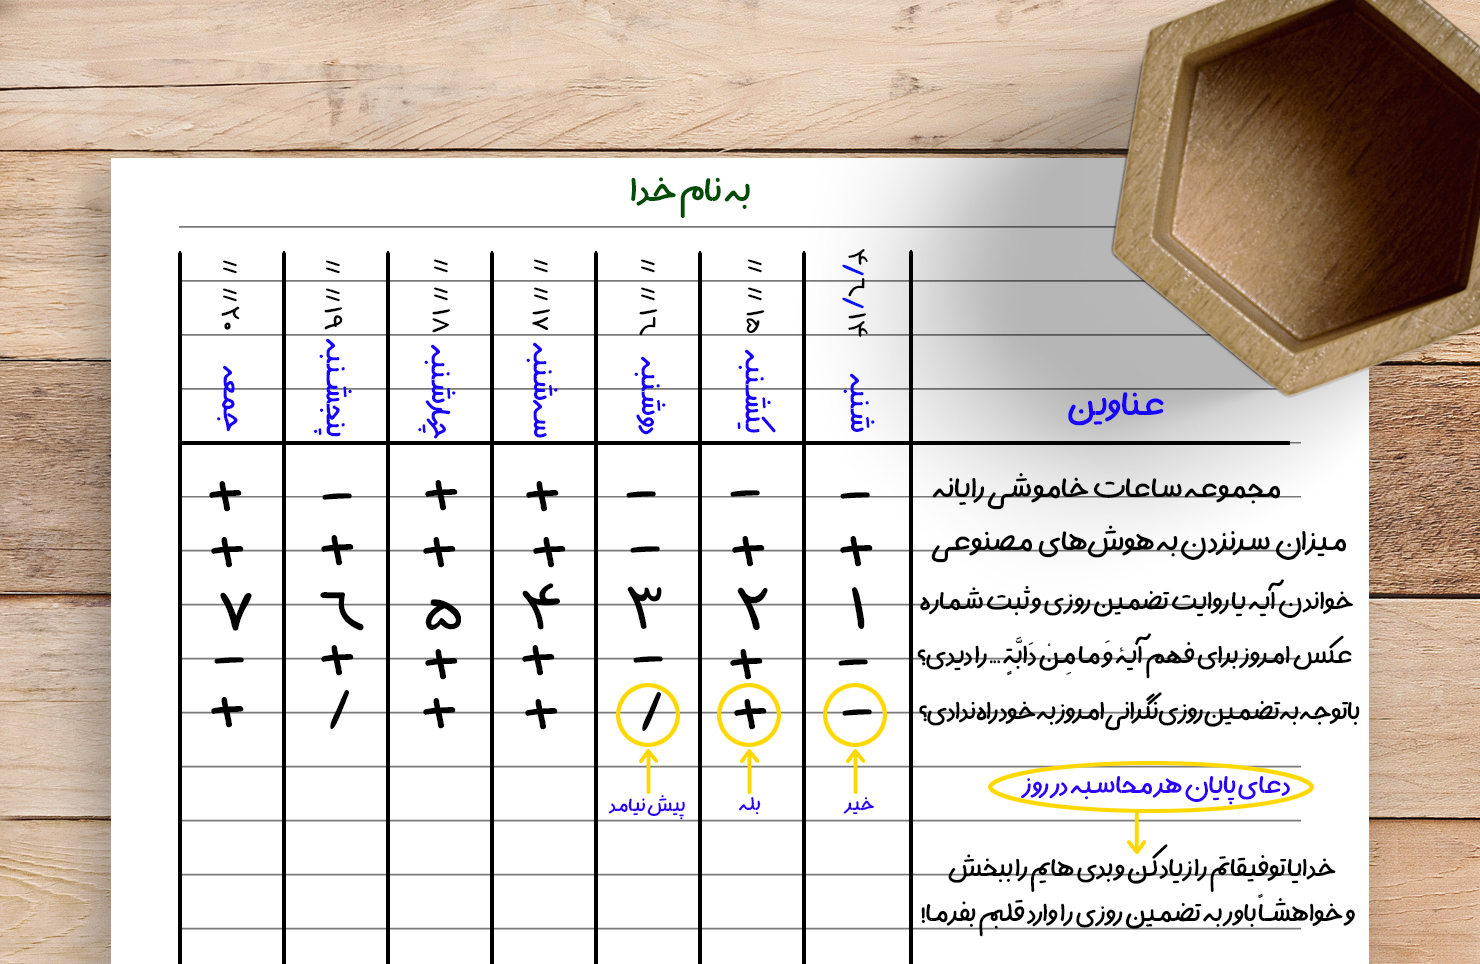 به نام خدا
۴/۶/۱۴ // // ۱۵ // // ۱۶ // // ۱۷ // // ۱۸ // // ۱۹ // // ۲۰
عناوین شنبه یکشنبه دوشنبه سه‌شنبه چهارشنبه پنجشنبه جمعه
مجموعه ساعات خاموشی رایانه - - - + + - +
میزان سرنزدن به هوش‌های مصنوعی + + - + + + +
خواندن آیه یا روایت تضمین روزی و ثبت شماره ۱ ۲ ۳ ۴ ۵ ۶ ۷
عکس امروز برای فهم آیۀ وَ ما مِن دَابَّةٍ ... را دیدی؟ - + - + + + -
باتوجه به تضمین روزی نگرانی امروز به خود راه ندادی؟ - + / + + / +
خیر بله پیش نیامد
دعای پایان هر محاسبه در روز
خدایا توفیقاتم را زیاد کن و بدی هایم را ببخش
و خواهشاً باور به تضمین روزی را وارد قلبم بفرما!